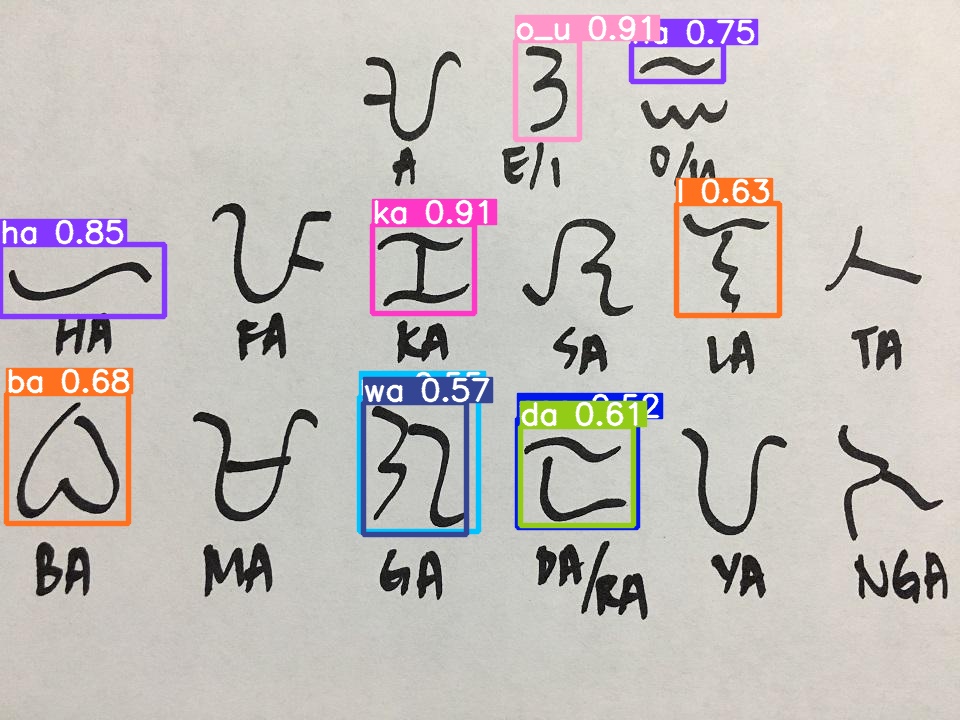 o_u 0.91 0.75
ᜀ ᜂ ᜁ
A E/I O/U
ha 0.85 ka 0.91 l 0.63
ᜑ ᜉ ᜃ ᜐ ᜎ ᜆ
HA FA KA SA LA TA
ba 0.68 wa 0.57 da 0.61
ᜊ ᜋ ᜄ ᜇ ᜌ ᜅ
BA MA GA DA/RA YA NGA